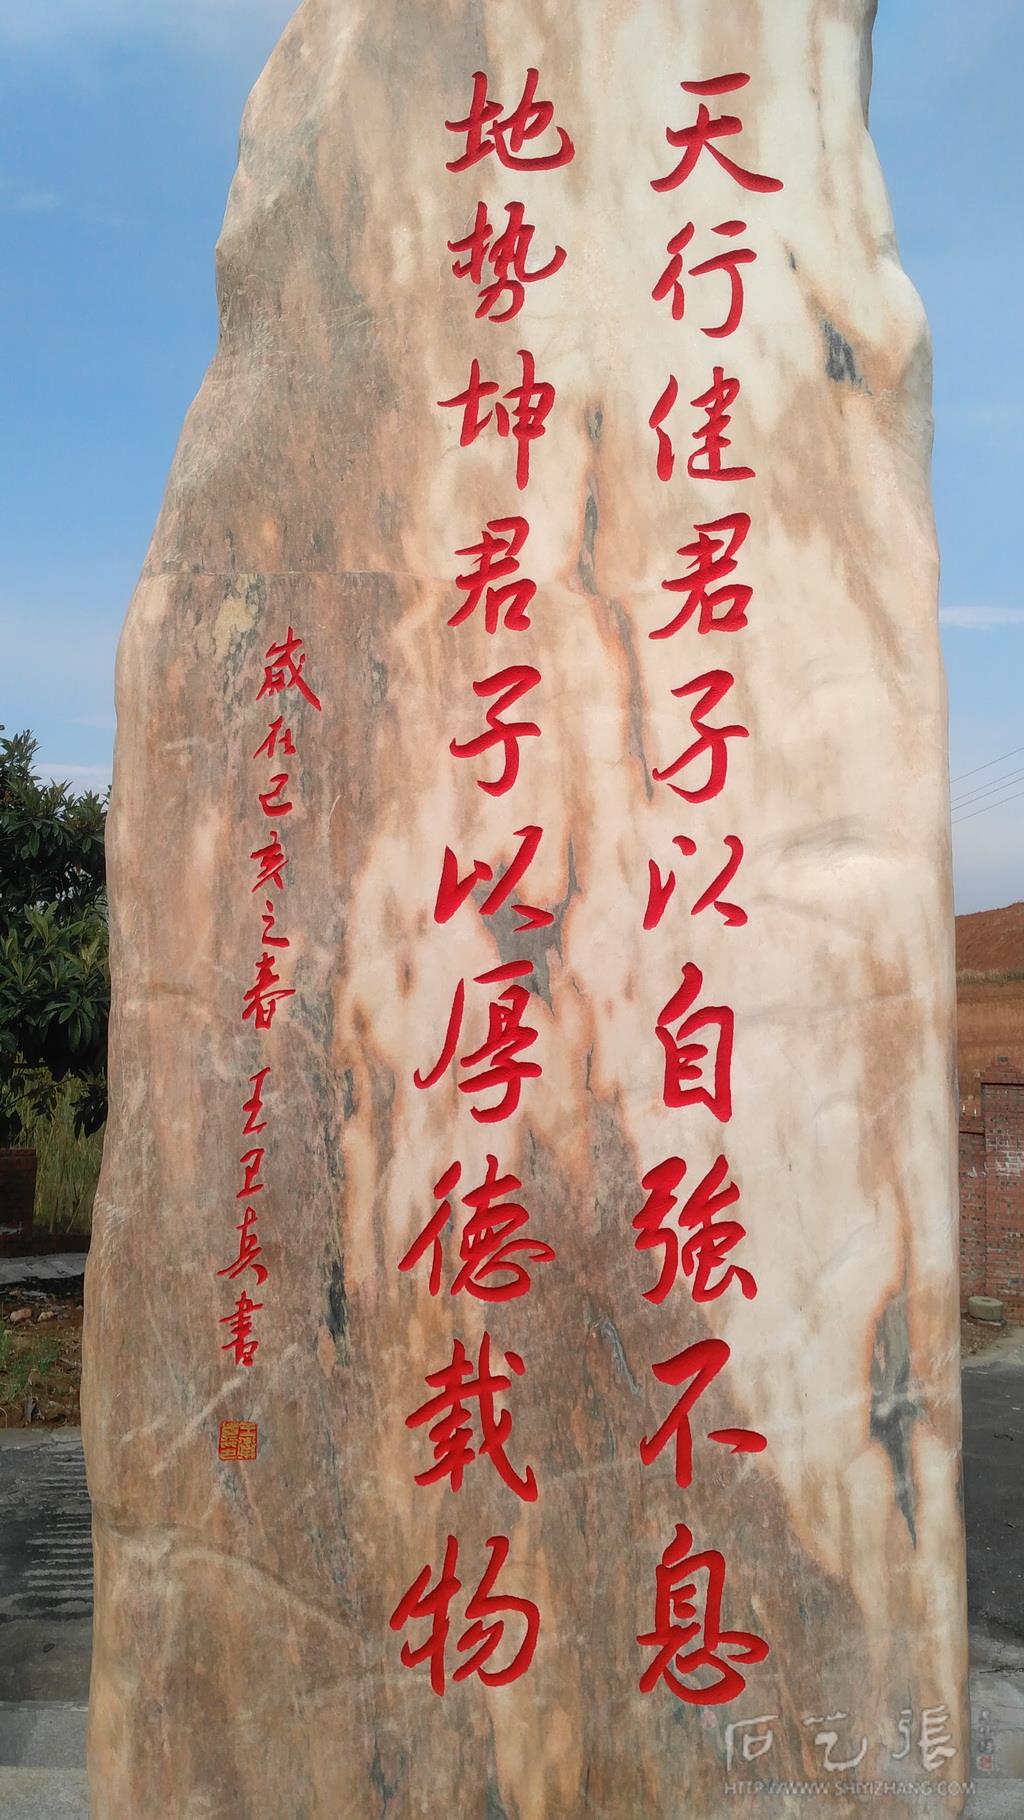 天行健君子以自強不息
地势坤君子以厚德载物
歲在己亥之春 王卫真書
石艺張
HTTP://WWW.SHIYIZHANG.COM